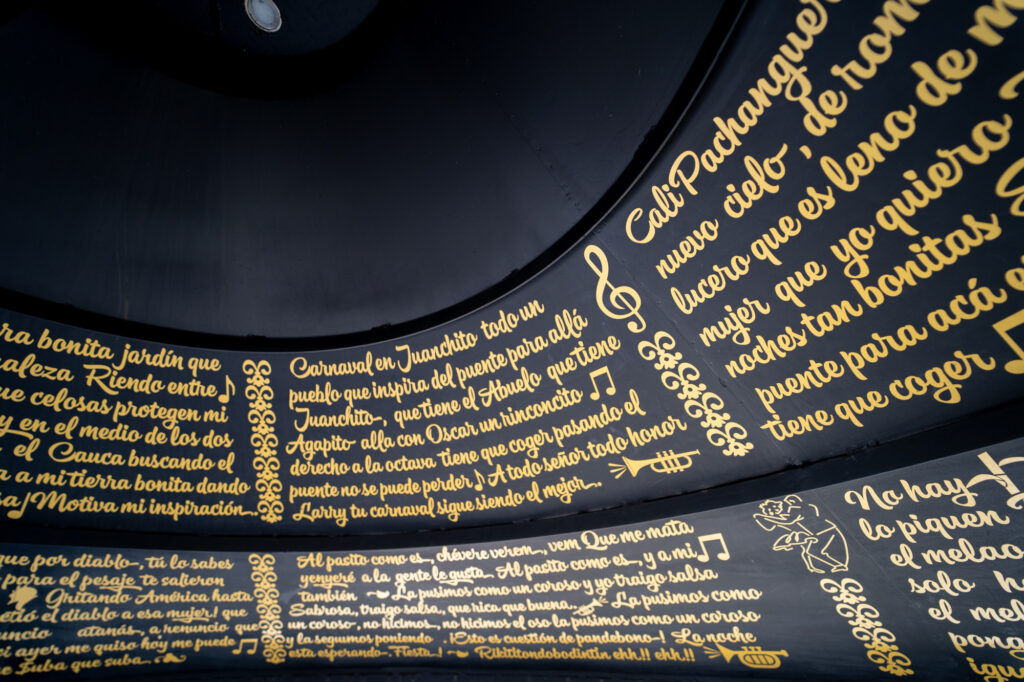 bonita jardín que
Riendo entre
celosas protegen mi
y en el medio de los dos
el Cauca buscando el
a mi tierra bonita dando
Motiva mi inspiración.
Carnaval en Juanchito todo un
pueblo que inspira del puente para allá
Juanchito, que tiene el Abuelo que tiene
Agapito alla con Oscar un rinconcito
derecho a la octava tiene que coger pasando el
puente no se puede perder A todo señor todo honor
Larry tu carnaval sigue siendo el mejor.
Cali
nuevo cielo, de
lucero que es leno de
mujer que yo quiero
noches tan bonitas
puente para acá
tiene que coger
que por diablo, tú lo sabes
para el pesaje te salieron
Gritando América hasta
el diablo a esa mujer! que
atanás, a renuncio que
ayer me quiso hoy me puede
Suba que suba.
Al pasito como es, chévere verem, vem Que me mata
yenyeré a la gente le gusta. Al pasito como es, y a mi
también La pusimos como un coroso y yo traigo salsa
Sabrosa, traigo salsa, que rica que buena. La pusimos como
un coroso, no hicimos, no hicimos el oso la pusimos como un coroso
y la seguimos poniendo ¡Esto es cuestión de pandebono! La noche
esta esperando, Fiesta! Rikititondobodintin ehh!! ehh!!
No hay
lo piquen
el melao
solo
el